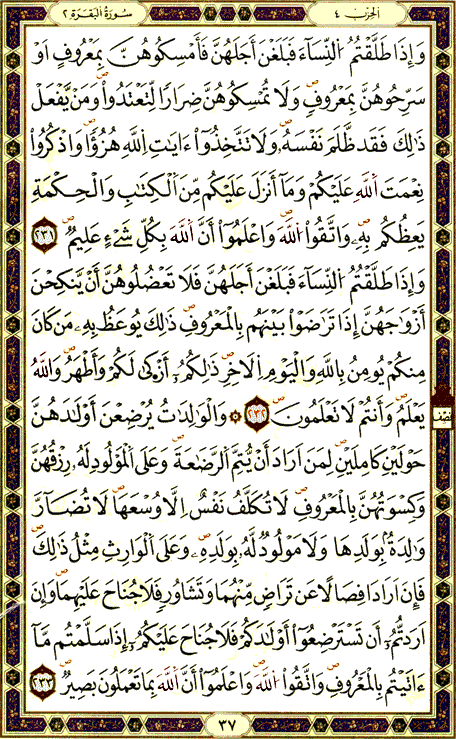 سورة البقرة ٢
الحزب ٤
وَإِذَا طَلَّقْتُمُ اُ۬لنِّسَآءَ فَبَلَغْنَ أَجَلَهُنَّ فَأَمْسِكُوهُنَّ بِمَعْرُوفٍ اَوْ
سَرِّحُوهُنَّ بِمَعْرُوفٖ وَلَا تُمْسِكُوهُنَّ ضِرَارٗا لِّتَعْتَدُواْ وَمَنْ يَّفْعَلْ
ذَٰلِكَ فَقَد ظَّلَمَ نَفْسَهُۥ وَلَا تَتَّخِذُوٓاْ ءَايَٰتِ اِ۬للَّهِ هُزُؤٗا وَاذْكُرُواْ
نِعْمَتَ اَ۬للَّهِ عَلَيْكُمْ وَمَآ أَنزَلَ عَلَيْكُم مِّنَ اَ۬لْكِتَٰبِ وَالْحِكْمَةِ
يَعِظُكُم بِهِۦ وَاتَّقُواْ اُ۬للَّهَ وَاعْلَمُوٓاْ أَنَّ اَ۬للَّهَ بِكُلِّ شَيْءٍ عَلِيمٞ ٢٣١
وَإِذَا طَلَّقْتُمُ اُ۬لنِّسَآءَ فَبَلَغْنَ أَجَلَهُنَّ فَلَا تَعْضُلُوهُنَّ أَنْ يَّنكِحْنَ
أَزْوَٰجَهُنَّ إِذَا تَرَٰضَوْاْ بَيْنَهُم بِالْمَعْرُوفِ ذَٰلِكَ يُوعَظُ بِهِۦ مَن كَانَ
مِنكُمْ يُومِنُ بِاللَّهِ وَالْيَوْمِ اِ۬لَاخِرِ ذَٰلِكُمُۥٓ أَزْكَىٰ لَكُمْ وَأَطْهَرُ وَاللَّهُ
يَعْلَمُ وَأَنتُمْ لَا تَعْلَمُونَ ٢٣٢ ۞ وَالْوَٰلِدَٰتُ يُرْضِعْنَ أَوْلَٰدَهُنَّ
حَوْلَيْنِ كَامِلَيْنِ لِمَنَ اَرَادَ أَنْ يُّتِمَّ اَ۬لرَّضَٰعَةَ وَعَلَى اَ۬لْمَوْلُودِ لَهُۥ رِزْقُهُنَّ
وَكِسْوَتُهُنَّ بِالْمَعْرُوفِ لَا تُكَلَّفُ نَفْسٌ اِلَّا وُسْعَهَا لَا تُضَآرَّ
وَٰلِدَةُۢ بِوَلَدِهَا وَلَا مَوْلُودٞ لَّهُۥ بِوَلَدِهِۦ وَعَلَى اَ۬لْوَارِثِ مِثْلُ ذَٰلِكَ
فَإِنَ اَرَادَا فِصَالًا عَن تَرَاضٖ مِّنْهُمَا وَتَشَاوُرٖ فَلَا جُنَاحَ عَلَيْهِمَا وَإِنَ
اَرَدتُّمُۥٓ أَن تَسْتَرْضِعُوٓاْ أَوْلَٰدَكُمْ فَلَا جُنَاحَ عَلَيْكُمُۥٓ إِذَا سَلَّمْتُم مَّآ
ءَاتَيْتُم بِالْمَعْرُوفِ وَاتَّقُواْ اُ۬للَّهَ وَاعْلَمُوٓاْ أَنَّ اَ۬للَّهَ بِمَا تَعْمَلُونَ بَصِيرٞ ٢٣٣
٣٧